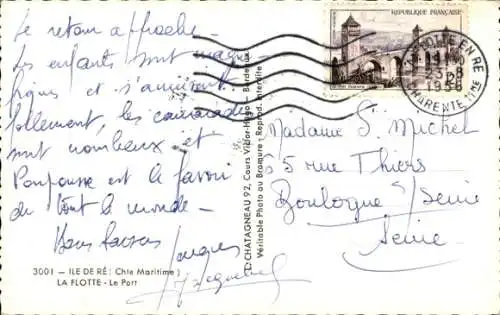 Le retour approche -
Les enfants sont magni
fiques et s'amusent
follement, les camarades
sont nombreux et
Poupousse est le favori
de tout le monde -
Bons baisers
Jacques
Jacqueline
3001 - ILE DE RÉ (Chte Maritime)
LA FLOTTE - Le Port
CHATAGNEAU 92, Cours Victor-Hugo - Bordeaux
Véritable Photo au Bromure - Reprod. interdite
REPUBLIQUE FRANÇAISE
LA FLOTTE EN RE
13-8
1958
CHARENTE-MME
Madame S. Michel
55 rue Thiers
Boulogne s/Seine
Seine